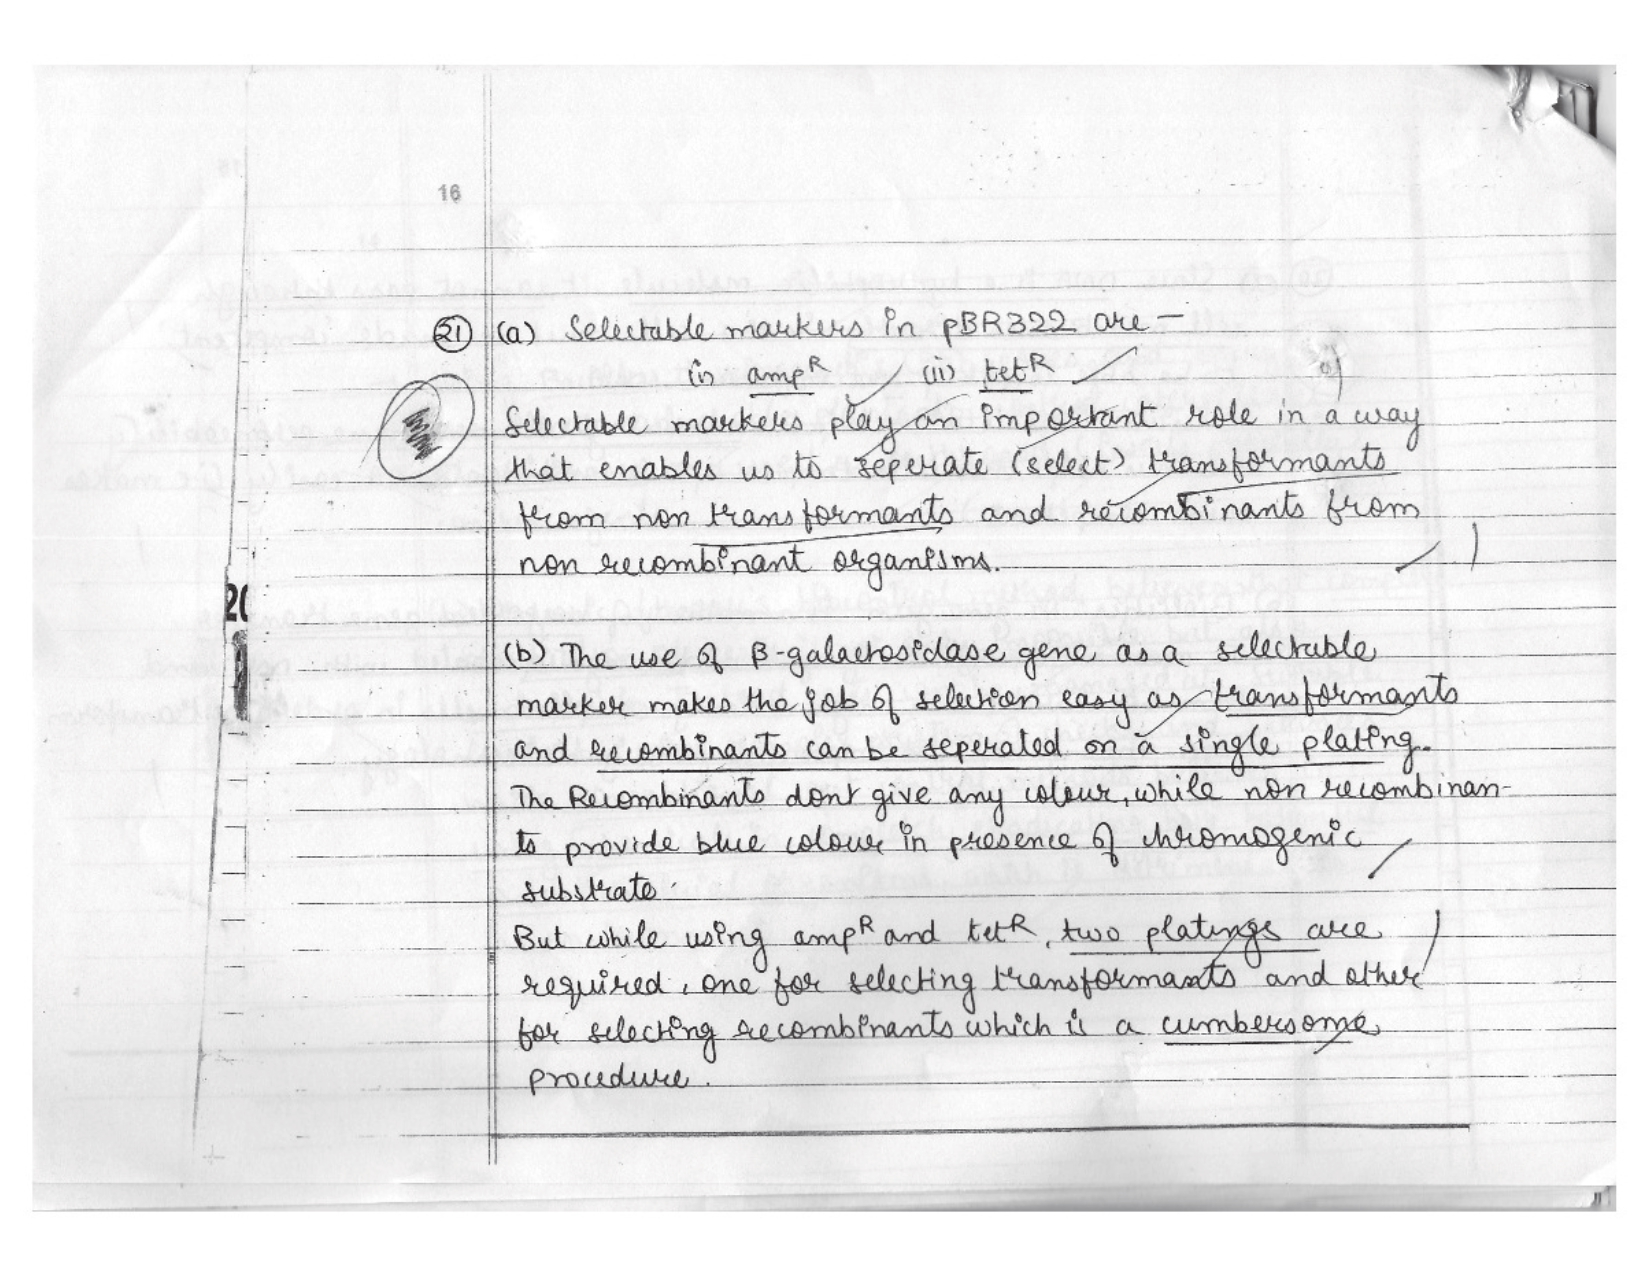 16
21 (a) Selectable markers in pBR322 are –
(i) ampᴿ (ii) tetᴿ
Selectable markers play an important role in a way
that enables us to seperate (select) transformants
from non transformants and recombinants from
non recombinant organisms.
1
20
(b) The use of β-galactosidase gene as a selectable
marker makes the job of selection easy as transformants
and recombinants can be seperated on a single plating.
The Recombinants dont give any colour, while non recombinan-
ts provide blue colour in presence of chromogenic
substrate.
But while using ampᴿ and tetᴿ, two platings are
required, one for selecting transformants and other
for selecting recombinants which is a cumbersome
procedure.